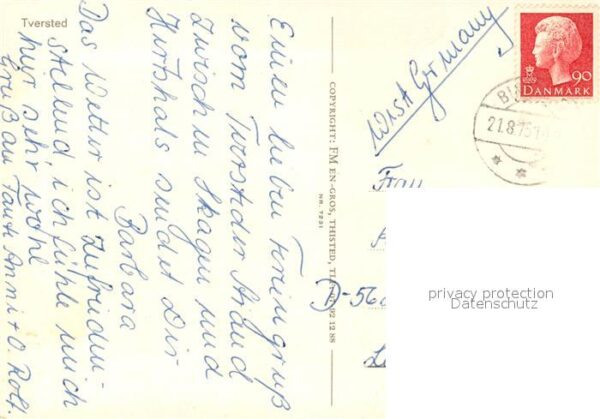 Tversted
Einen lieben Feriengruß
vom Tverstder Strand
zwischen Skagen und
Hirtshals sendet Dir
Barbara
Das Wetter ist zufrieden-
stellend ich fühle mich
hier sehr wohl
Gruß an Tante Anni + O. Rolf
COPYRIGHT: FM EN-GROS, THISTED, TLF. 92 12 88
NR. 7231
West Germany
90
DANMARK
21.8.75
Frau
D-56
privacy protection
Datenschutz